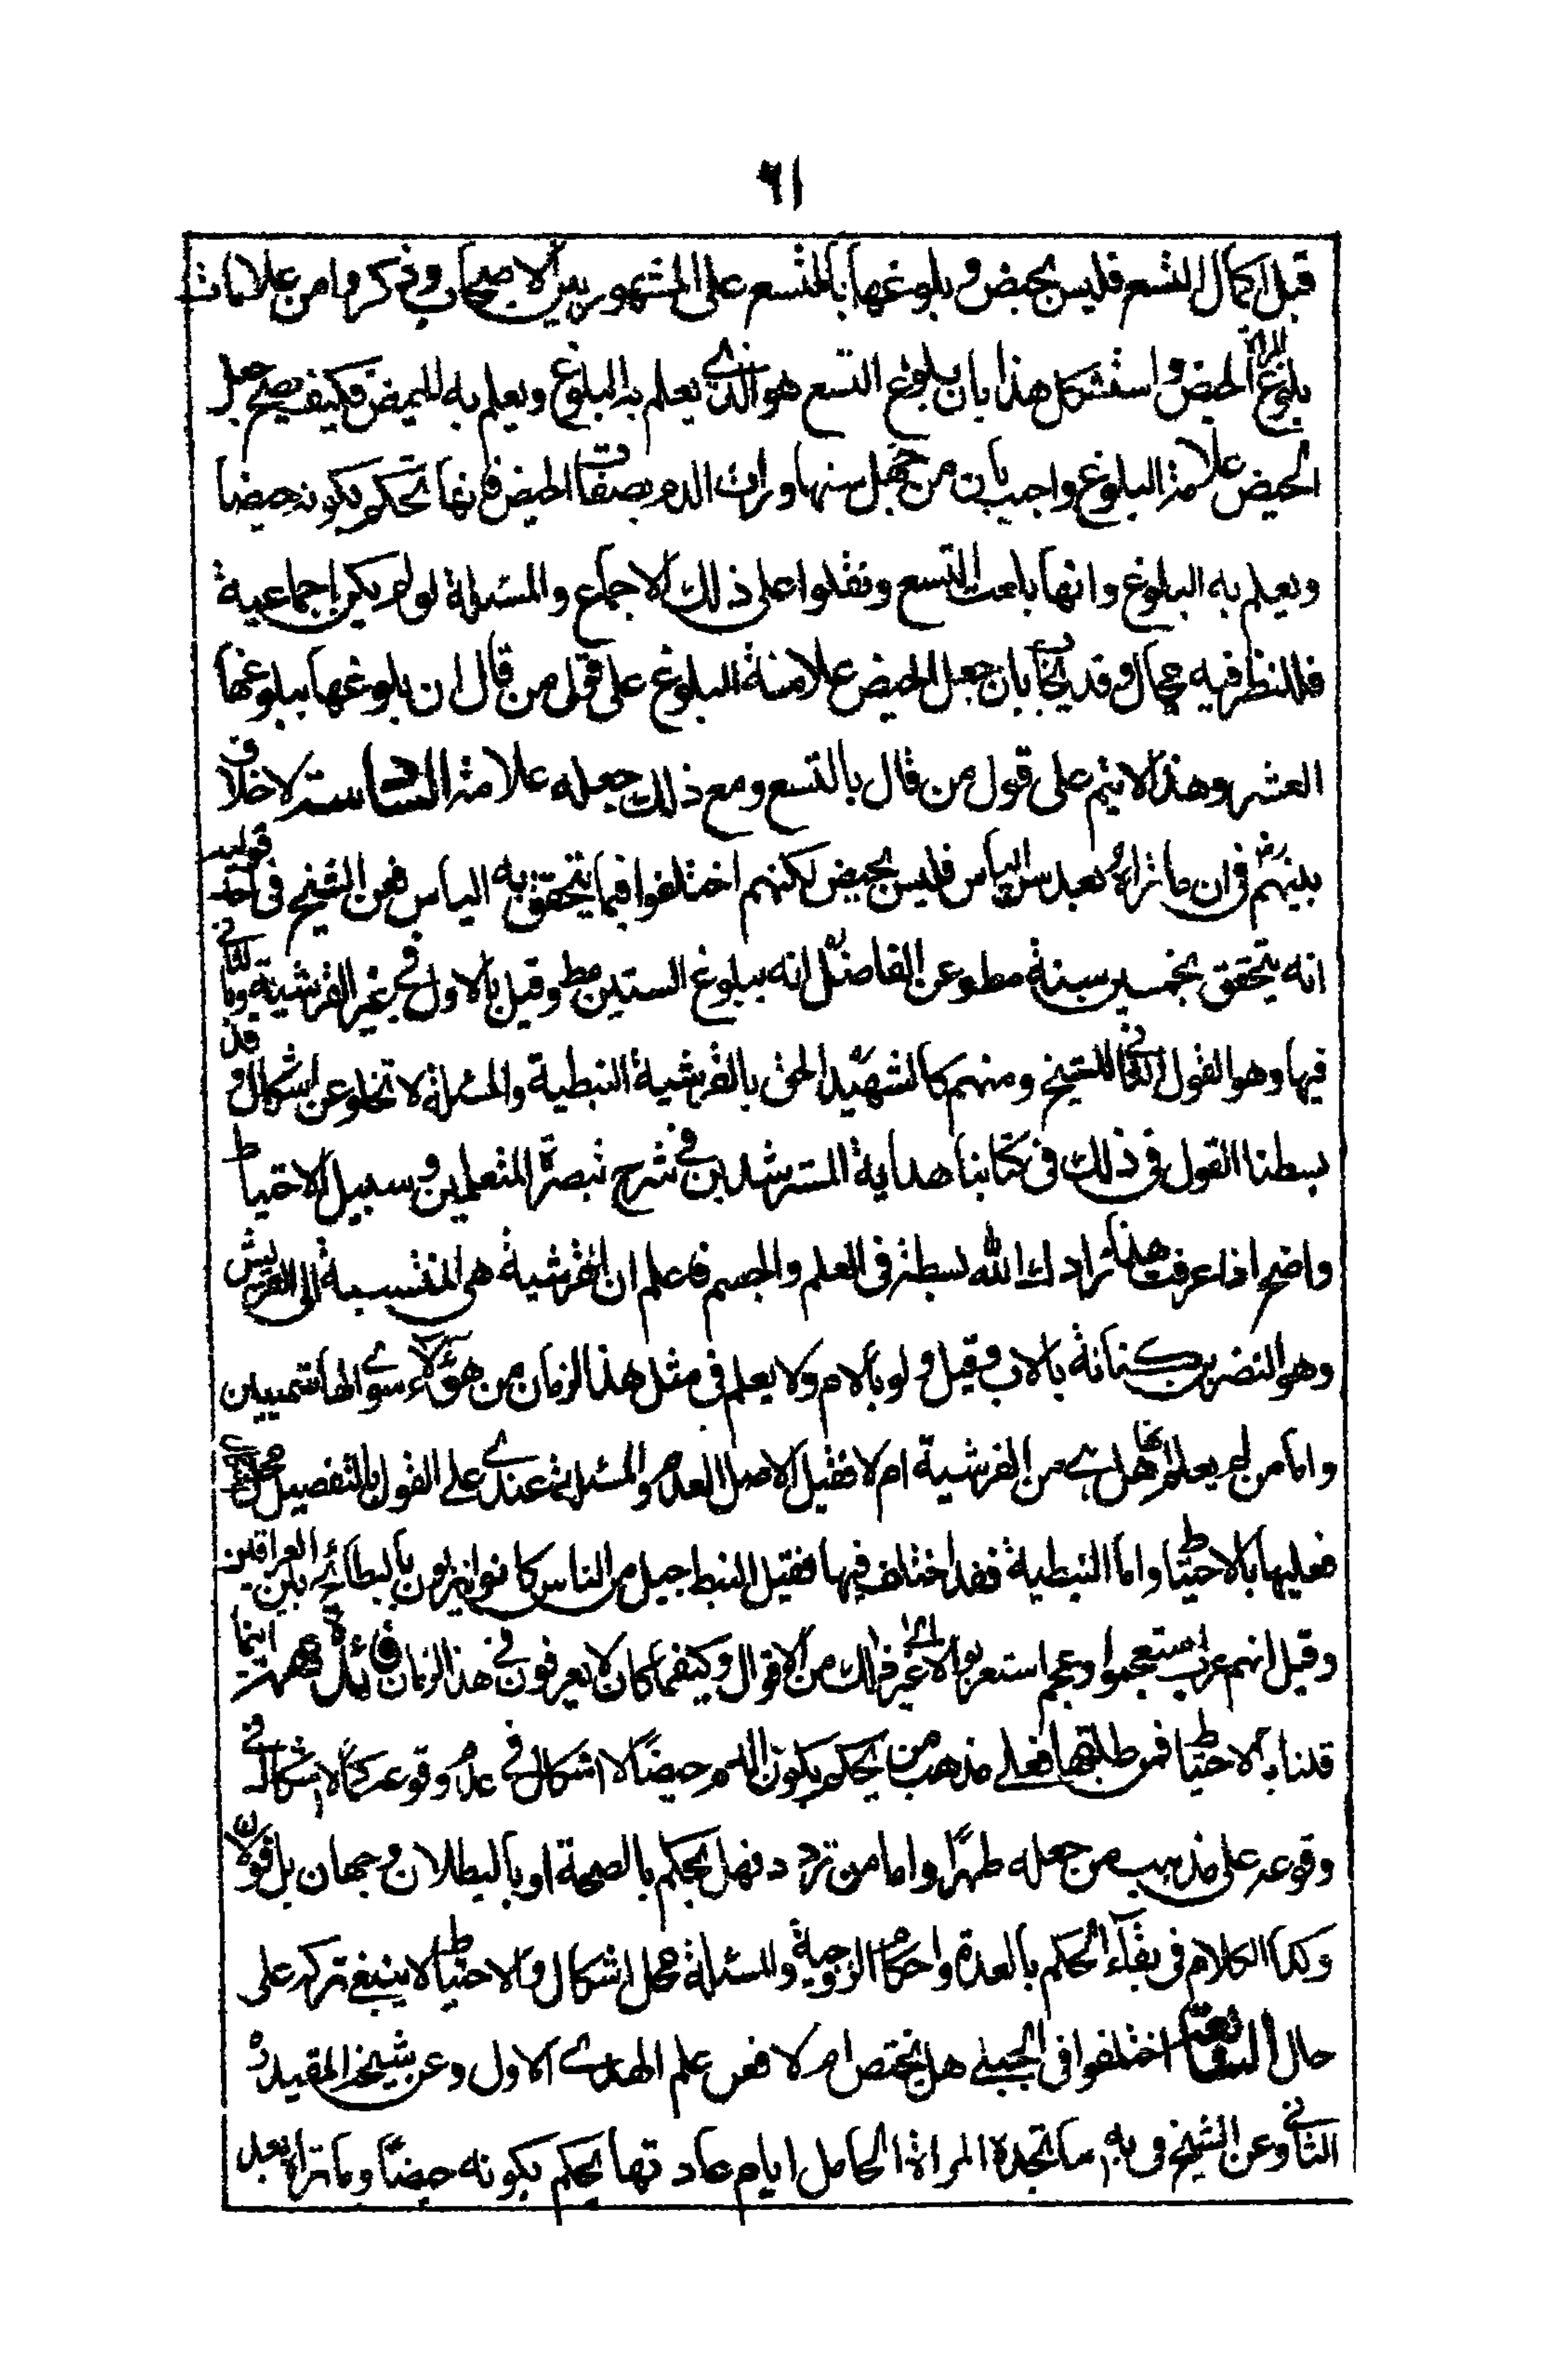 ٦١
قبل اكمال التسع فليس بحيض وبلوغها بالتسع على المشهور بين الاصحاب وذكروا من علامات
بلوغ المراة الحيض واستشكل هذا بان بلوغ التسع هو الذي يعلم به البلوغ ويعلم به الحيض فكيف يصح جعل
الحيض علامة البلوغ واجيب بان من جهل سنها ورات الدم بصفات الحيض فانها تحكم بكونه حيضا
ويعلم به البلوغ وانها بلغت التسع ونقلوا على ذلك الاجماع والمسئلة لو لم يكن اجماعية
فللنظر فيه مجال وقد يجاب بان جعل الحيض علامة البلوغ على قول من قال ان بلوغها ببلوغها
العشر وهذا لا يتم على قول من قال بالتسع ومع ذلك جعله علامة السادسة لا خلاف
بينهم في ان ما تراه بعد سن الياس فليس بحيض لكنهم اختلفوا فيما يتحقق به الياس فعن الشيخ في احد قوليه
انه يتحقق بخمسين سنة مطلقا وعن الفاضل انه ببلوغ الستين مط وقيل بالاول في غير القرشية وبالثاني
فيها وهو القول الثاني للشيخ ومنهم كالشهيد الحق بالقرشية النبطية والمسئلة لا تخلو عن اشكال وقد
بسطنا القول في ذلك في كتابنا هداية المسترشدين في شرح تبصرة المتعلمين وسبيل الاحتياط
واضح اذا عرفت هذا زادك الله بسطة في العلم والجسم فاعلم ان القرشية هي المنتسبة الى القريش
وهو النضر بن كنانة بالاب وقيل ولو بالام ولا يعلم في مثل هذا الزمان من هؤلاء سوى الهاشميين
واما من لم يعلم انها هل هي من القرشية ام لا فقيل الاصل العدم والمسئلة عندي على القول بالتفصيل
فعليها بالاحتياط واما النبطية فقد اختلف فيها فقيل النبط جيل من الناس كانوا ينزلون بالبطائح بين العراقين
وقيل انهم عرب استعجموا وعجم استعربوا الى غير ذلك من الاقوال وكيفما كان لا يعرفون في هذا الزمان فائدة اينما
قلنا بالاحتياط فمن طلقها فعلى مذهب من يحكم بكون الدم حيضًا لا اشكال في عدم وقوعه كما لا اشكال في
وقوعه على مذهب من جعله طهرًا واما من تردد فهل يحكم بالصحة او بالبطلان وجهان بل قولان
وكذا الكلام في بقاء الحكم بالعدة واحكام الزوجية والمسئلة محل اشكال والاحتياط لا ينبغي تركه على
حال اختلفوا في الحبلى هل تحيض ام لا فعن علم الهدى الاول وعن شيخه المفيد
الثاني وعن الشيخ في يه ما تجده المراة الحامل ايام عادتها يحكم بكونه حيضًا وما تراه بعد